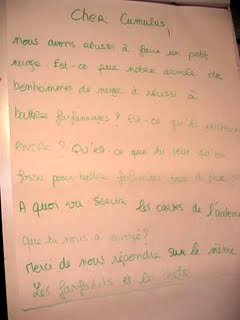 Cher Cumulus,
nous avons réussi à faire un petit
nuage. Est-ce que notre armée de
bonhommes de neige a réussi à
battre farfannages ? Est-ce qu'ils existent
encore ? Qu'est ce que tu veux qu'on
fasse pour battre
A quoi va servir les cartes de l'automne
que tu nous a envoyé ?
Merci de nous répondre sur la même
Les farfadets et le chefs